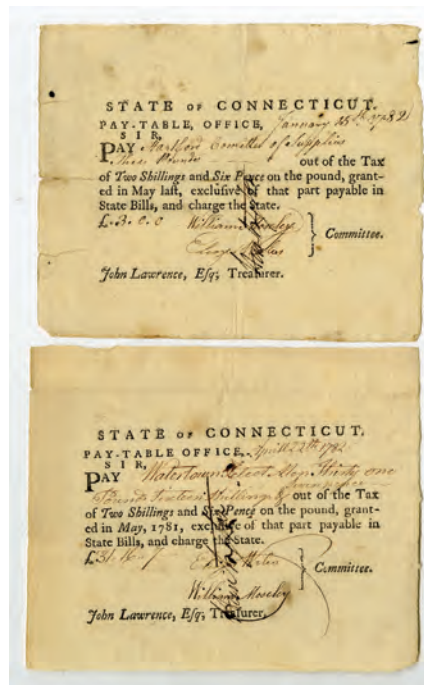 STATE OF CONNECTICUT.
PAY-TABLE, OFFICE, January 15th 1782
SIR,
PAY Hartford Committee of Supplies
Three Pounds out of the Tax
of Two Shillings and Six Pence on the pound, grant-
ed in May last, exclusive of that part payable in
State Bills, and charge the State.
£.3.0.0 William Moseley
Committee.
John Lawrence, Esq; Treasurer.
STATE OF CONNECTICUT.
PAY-TABLE OFFICE, April 22th 1782
SIR,
PAY Watertown Select Men Thirty one
Pounds Sixteen Shillings & out of the Tax
of Two Shillings and Six Pence on the pound, grant-
ed in May, 1781, exclusive of that part payable in
State Bills, and charge the State.
£31.16.7
Committee.
William Moseley
John Lawrence, Esq; Treasurer.